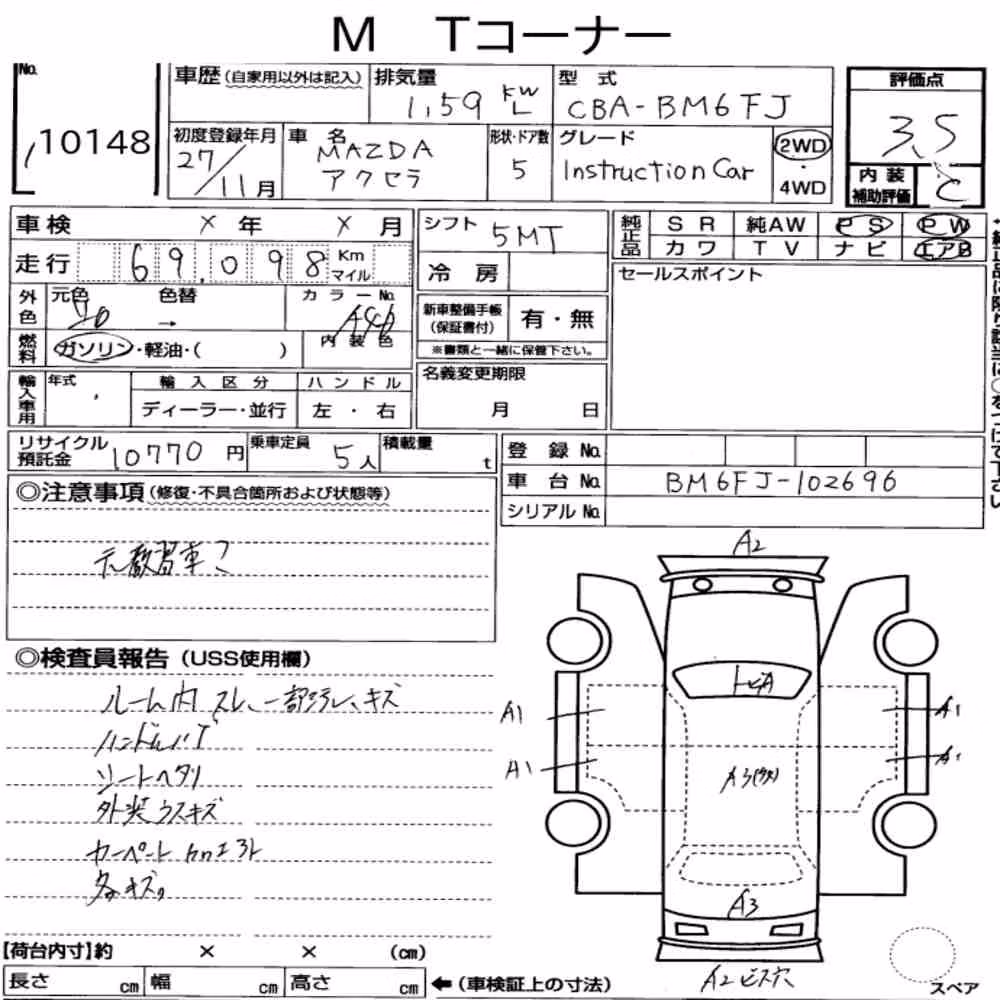 M Tコーナー
No. 10148
車歴(自家用以外は記入)
排気量 1,59 KW L
型式 CBA-BM6FJ
評価点 3.5
初度登録年月 27/11月
車名 MAZDA アクセラ
形状・ドア数 5
グレード Instruction Car
2WD・4WD
内装補助評価 C
車検 × 年 × 月
シフト 5MT
純正品 SR 純AW PS PW
カワ TV ナビ エアB
走行 69.098 Km マイル
冷房
セールスポイント
外色 元色 色替 → カラーNo.
新車整備手帳(保証書付) 有・無
内装色
燃料 ガソリン・軽油・( )
※書類と一緒に保管下さい。
名義変更期限 月 日
輸入車用 年式 輸入区分 ハンドル
ディーラー・並行 左・右
リサイクル預託金 10770円
乗車定員 5人
積載量 t
登録No.
車台No. BM6FJ-102696
シリアルNo.
◎注意事項(修復・不具合箇所および状態等)
元教習車
◎検査員報告(USS使用欄)
ルーム内スレ、一部汚レ、キズ
シートヘタリ
外装ウスキズ
カーペート
A2
トビA
A1
A1
A1
A1
A3
A3
A2 ビス穴
【荷台内寸】約 × × (cm)
長さ cm 幅 cm 高さ cm ←(車検証上の寸法)
スペア